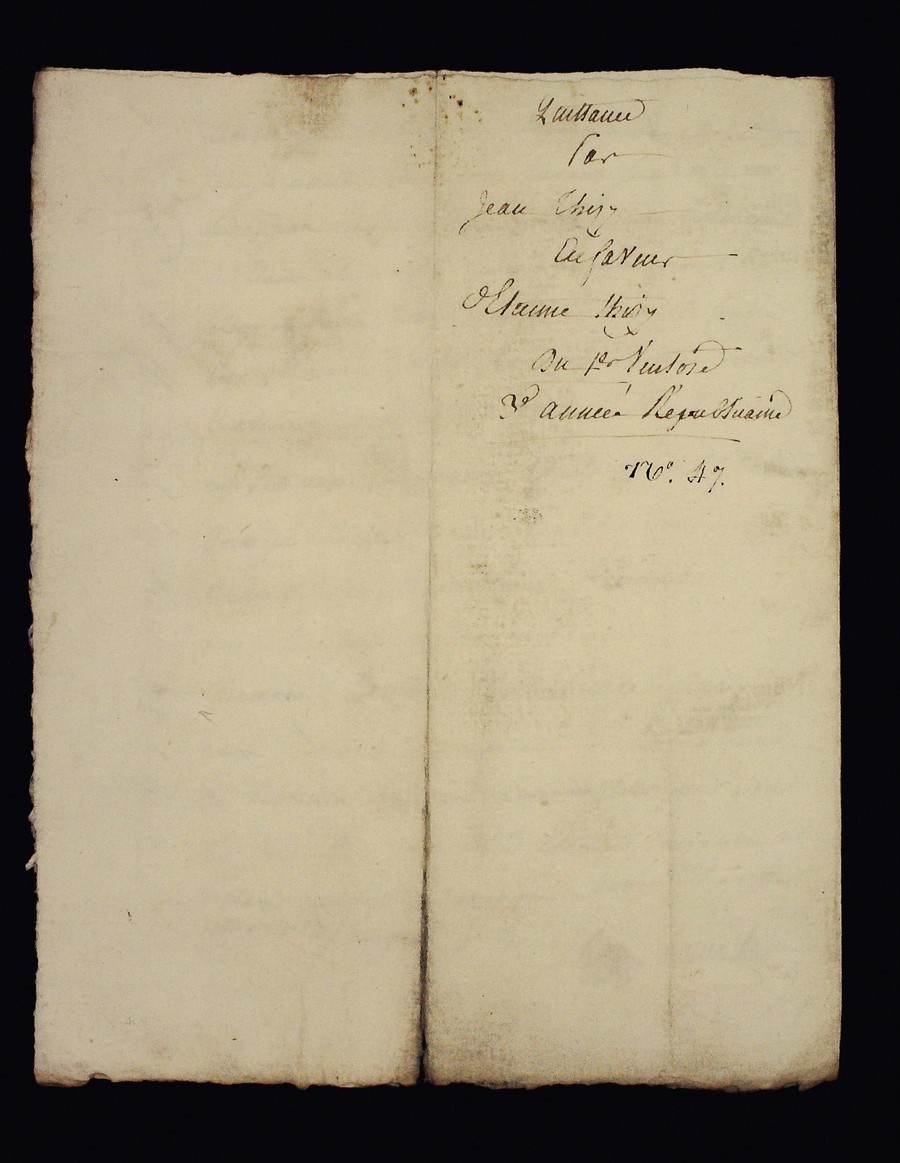 Quittance
Par
Jean Thiry
En faveur
d'Etienne Thiry
Du 1er Ventose
3e année Republicaine
No. 47.